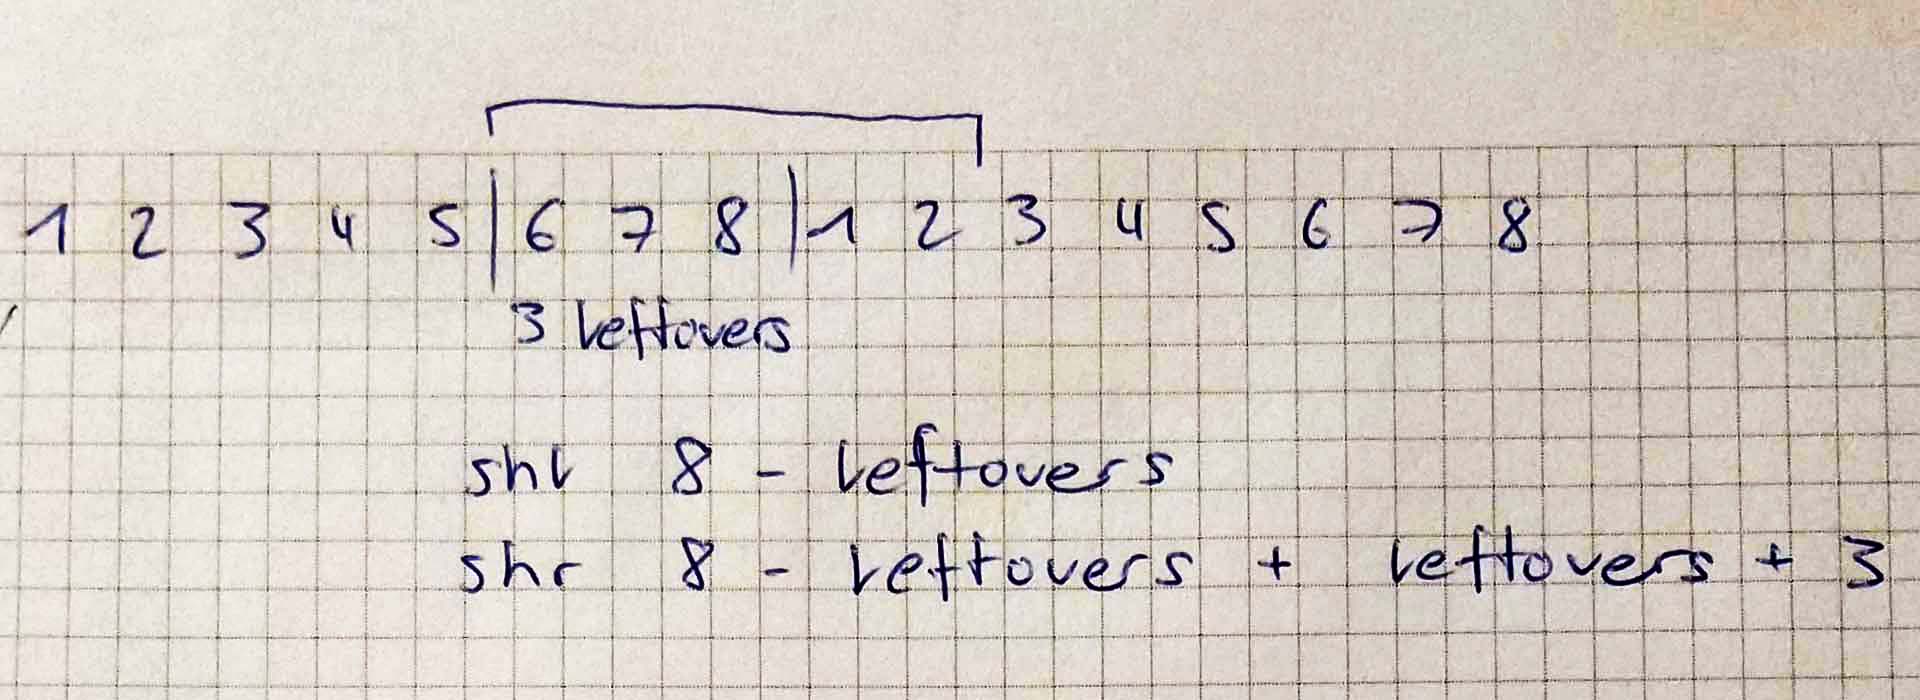 1 2 3 4 5 | 6 7 8 | 1 2 3 4 5 6 7 8
3 leftovers
shl 8 - leftovers
shr 8 - leftovers + leftovers + 3